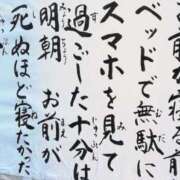 が寝る前
ベッドで無駄に
スマホを見て
過ごした十分は
明朝 お前が
死ぬほど寝たかった